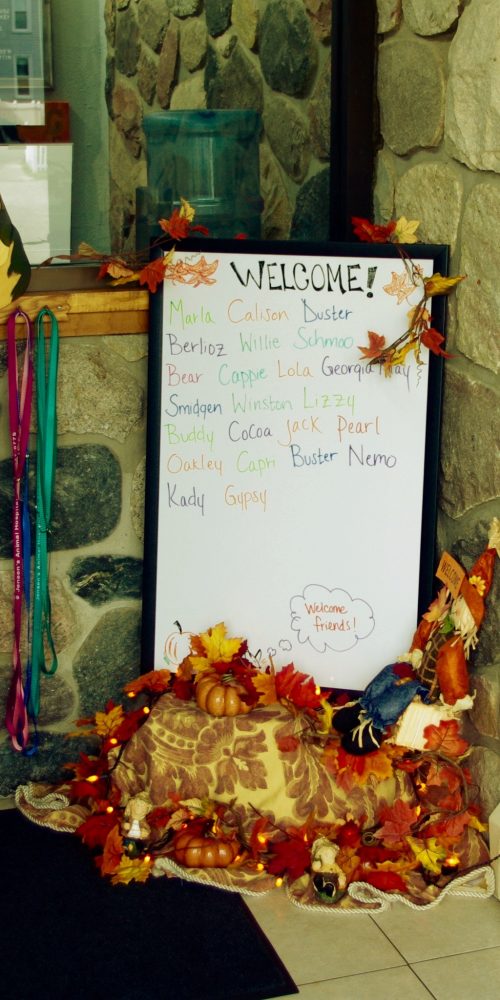 WELCOME!
Marla Calison Duster
Berlioz Willie Schmoo
Bear Cappie Lola Georgia May
Smidgen Winston Lizzy
Buddy Cocoa Jack Pearl
Oakley Capri Buster Nemo
Kady Gypsy
Welcome
friends!
WELCOME
Jensen's Animal Hospital
Jensen's Animal